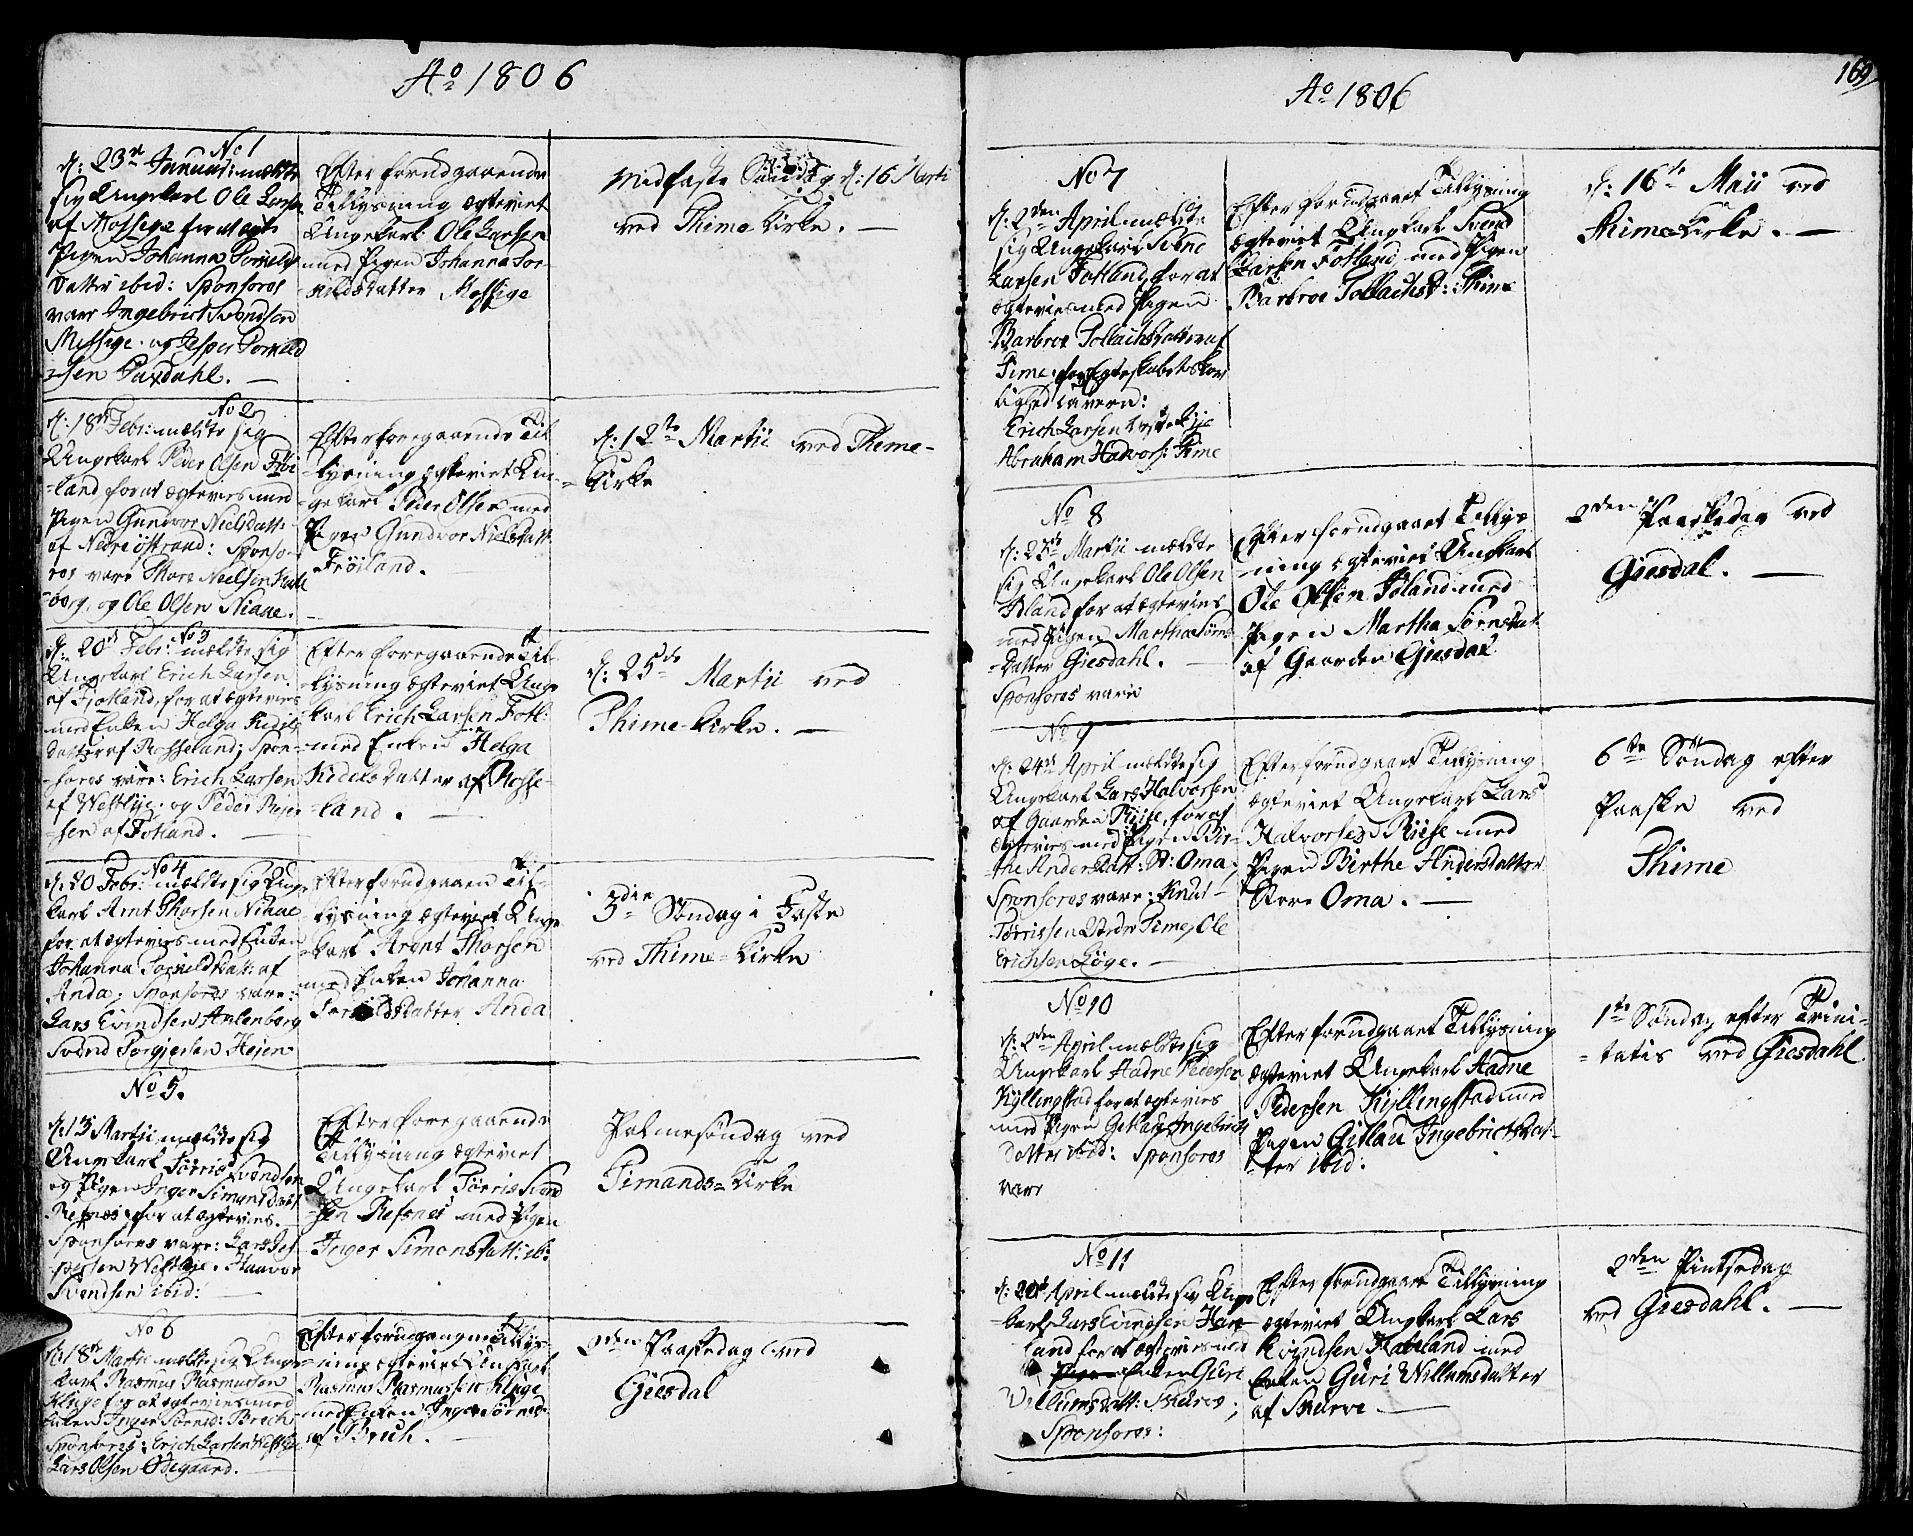 Ao 1806
No 1
d: 23de Januarii mældte
sig Ungekarl Ole Larsen
af Mossige for at ægte
Pigen Johanna Torkields
datter ibid: Sponsores
vare Ingebrict Svendsen
Mossige og Jesper Torkield
sen Taxdahl. —
Efter forudgaaende
Tillysning ægteviet
Ungekarl Ole Larsen
med Pigen Johanna Tor-
kildsdatter Mossige
Midfaste Søndag d: 16 Marti
ved Thime Kirke. —
No 2
d: 18de Febr: mældte sig
Ungekarl Peder Olsen Frøi
-land for at ægtevies med
Pigen Gundvor Nielsdatt:
af Nedre Østraad: Sponso-
res vare Thore Neelsen
borg, og Ole Olsen Niaae.
Efter foregaaende Til-
-lysning ægteviet Un-
gekarl Peder Olsen med
Pigen Gundvor Nielsdatt
Frøiland.
d: 12te Martii ved Thime-
Kirke
No 3
d: 20de Febr: mældte sig
Ungekarl Erich Larsen
af Fotland, for at ægtevies
med Enken Helga Kedels
datter af Rosseland; Spon-
-sores vare: Erich Larsen
af Westlye, og Peder Peder
-sen af Fotland. —
Efter foregaaende Til-
-lysning ægteviet Unge
karl Erich Larsen Fotl:
med Enken Helga
Kedelsdatter af Rosse-
-land. —
d: 25de Martii ved
Thime-Kirke. —
No 4
d: 20 Febr: mældte sig Unge
karl Arnt Thorsen Niaae
for at ægtevies med Enken
Johanna Torkieldsdatt: af
Anda, Sponsores vare:
Lars Eivindsen Aslenborg
Svend Torgiersen Høien
Efter forudgaaen Til-
lysning ægteviet Unge
karl Arent Thorsen
med Enken Johanna
Torkildsdatter Anda
3die Søndag i Faste
ved Thime-Kirke
No 5.
d: 13 Martii mældte sig
Ungekarl Tørris Svendsen
og Pigen Inger Simonsdatt
Refsnes for at ægtevies.
Sponsores vare: Lars Jes
persen Westlye. Haavor
Svendsen ibid: —
Efter foregaaende
Tillysning ægteviet
Ungekarl Tørris Svend
sen Refsnes med Pigen
Inger Simonsdatt: ib:
Palmesøndag ved
Timands-Kirke
No 6
d: 18de Martii mældte sig Unge
karl Rasmus Rasmussen
Kluge for at ægtevies med
Enken Inger Sørensd: Bruch
Sponsores: Erich Larsen Westlye
Lars Olsen Ødegaard. —
Efter forudgangne Tillys-
-ning ægteviet Ungkarl
Rasmus Rasmussen Kluge
med Enken Inger Sørensd:
af Bruch. —
2den Paaskedag ved
Giesdal
Ao 1806
169
No 7
d: 2den April mældte
sig Ungekarl Svend
Larsen Fotland, for at
ægtevies med Pigen
Barbroe Tollachsdatter af
Time; for Egteskabets Lov
lighed caverer:
Erich Larsen Vestre Lye
Abraham Hadvors: Time
Efter forudgaaet Tillysning
ægteviet Ungkarl Svend
Larsen Fotland med Pigen
Barbroe Tollachsd: Thime
d: 16de Maii ved
Thime Kirke. —
No 8
d: 27de Martii mældte
sig Ungekarl Ole Olsen
for at ægtevies
med Pigen Martha Sørens
-datter Giesdahl. —
Sponsores vare
Efter forudgaaet Tillys
-ning ægteviet Ungkarl
Ole Olsen med
Pigen Martha Sørensdat
af Gaarden Giesdal
2den Paaskedag ved
Giesdal. —
No 9
d: 24de April mældte sig
Ungekarl Lars Halvorsen
af Gaarden Riise, for at
ægtevies med Pigen Bir-
the Andersdatt: St: Oma,
Sponsores vare: Knut
Tørrissen Nedre Time, Ole
Erichsen Løge. —
Efter forudgaaet Tillysning
ægteviet Ungekarl Lars
Halvorsen Riise med
Pigen Birthe Andersdatter
Store Oma. —
6te Søndag efter
Paaske ved
Thime
No 10
d: 2den April mældte sig
Ungekarl Aadne Pedersen
Kyllingstad for at ægtevies
med Pigen Gitlau Ingebrigts
datter ibid: Sponsores
vare
Efter forudgaaet Tillysning
ægteviet Ungekarl Aadne
Pedersen Kyllingstad med
Pigen Gitlau Ingebrictsdat-
ter ibid:
1ste Søndag efter Trini-
-tatis ved Giesdahl.
No 11
d: 20de April mældte sig Unge
-karl Lars Eivindsen Have
land for at ægtevies med
Enken Guri
Villumsdatt: Skurve;
Sponsores:
Efter forudgaaet Tillysning
ægteviet Ungkarl Lars
Eivindsen Haveland med
Enken Guri Willumsdatter
af Skurve. —
2den Pintsedag
ved Giesdahl. —